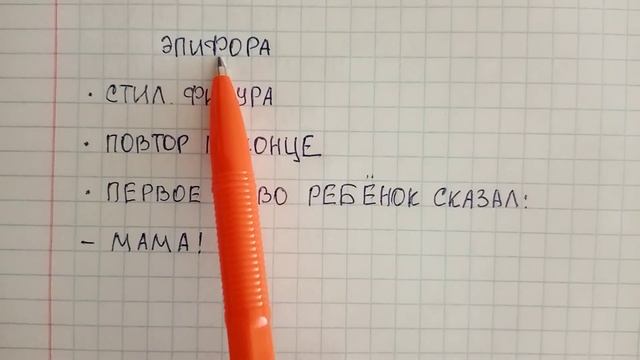 ЭПИФОРА
· СТИЛ. ФИГУРА
· ПОВТОР КОНЦЕ
· ПЕРВОЕ РЕБЁНОК СКАЗАЛ:
– МАМА!